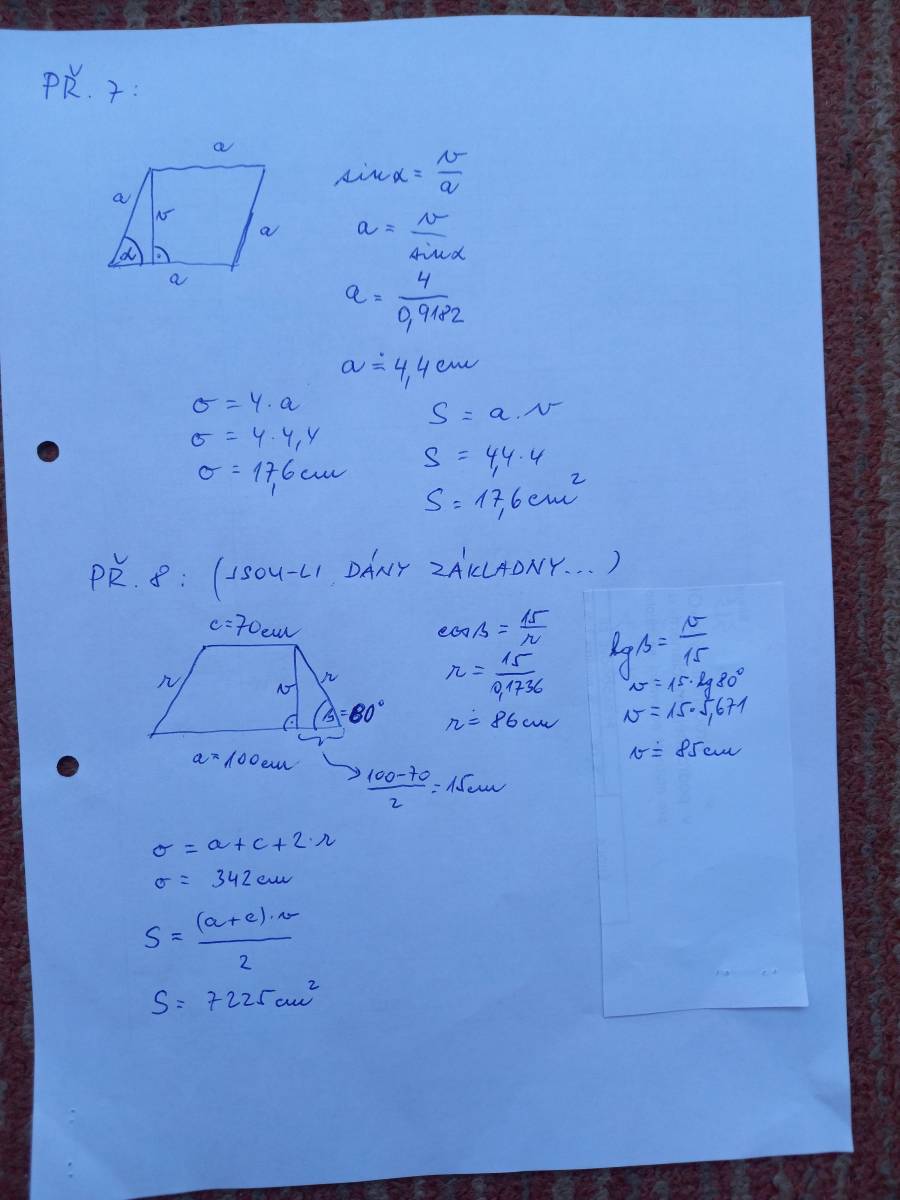 PŘ. 7:
a
a
v
a
α
a
sinα = v/a
a = v/sinα
a = 4/0,9182
a ≐ 4,4 cm
σ = 4·a
σ = 4·4,4
σ = 17,6 cm
S = a·v
S = 4,4·4
S = 17,6 cm²
PŘ. 8: (JSOU-LI DÁNY ZÁKLADNY...)
c=70cm
r
v
r
β=80°
a=100cm
(100-70)/2 = 15cm
cosβ = 15/r
r = 15/0,1736
r ≐ 86 cm
tgβ = v/15
v = 15·tg80°
v = 15·5,671
v ≐ 85cm
σ = a+c+2·r
σ = 342 cm
S = (a+c)·v/2
S = 7225 cm²